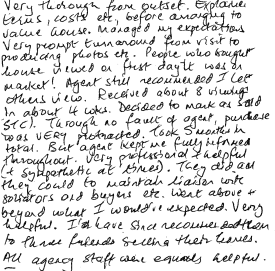 Very thorough from outset. Explained
terms, costs etc, before arranging to
value house. Managed my expectations
Very prompt turnaround from visit to
producing photos etc. People who bought
house viewed on first day it was on
market! Agent still recommended I let
others view. Received about 8 viewings
in about 4 wks. Decided to mark as sold
STC). Through no fault of agent, purchase
was VERY protracted. Took 5 months in
total. But agent kept me fully informed
throughout. Very professional & helpful
(& sympathetic at times). They did all
they could to maintain liaison with
solicitors and buyers etc. Went above &
beyond what I would've expected. Very
helpful. I have since recommended them
to three friends selling their homes.
All agency staff were equally helpful.